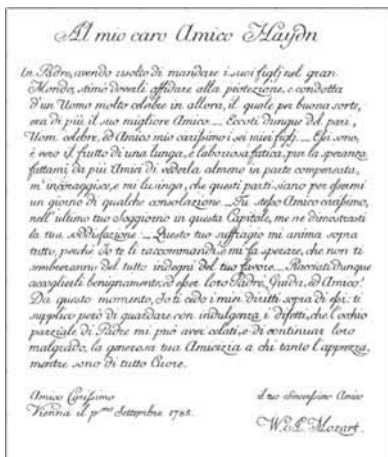 Al mio caro Amico Haydn
Un Padre, avendo risolto di mandare i suoi figlj nel gran
Mondo, stimò doverli affidare alla protezione, e condotta
d'un Uomo molto celebre in allora, il quale per buona sorte,
era di più il suo migliore Amico. — Eccoti dunque del pari,
Uom celebre, ed Amico mio carissimo i sei miei figlj. — Essi sono,
è vero il frutto di una lunga, e laboriosa fatica, pur la speranza
fattami da più Amici di vederla almeno in parte compensata,
m'incoraggisce, e mi lusinga, che questi parti siano per essermi
un giorno di qualche consolazione. — Tu stesso Amico carissimo,
nell'ultimo tuo Soggiorno in questa Capitale, me ne dimostrasti
la tua soddisfazione. — Questo tuo suffragio mi anima sopra
tutto, perchè Io te li raccommandi, e mi fa sperare, che non ti
sembreranno del tutto indegni del tuo favore. — Piacciati dunque
accoglierli benignamente; ed esser loro Padre, Guida, ed Amico!
Da questo momento, Io ti cedo i miei diritti sopra di essi: ti
supplico però di guardare con indulgenza i difetti, che l'occhio
parziale di Padre mi può aver celati, e di continuar loro
malgrado, la generosa tua Amicizia a chi tanto l'apprezza,
mentre sono di tutto Cuore.
Amico Carissimo
il tuo Sincerissimo Amico
Vienna il p.mo Settembre 1785.
W. A. Mozart.